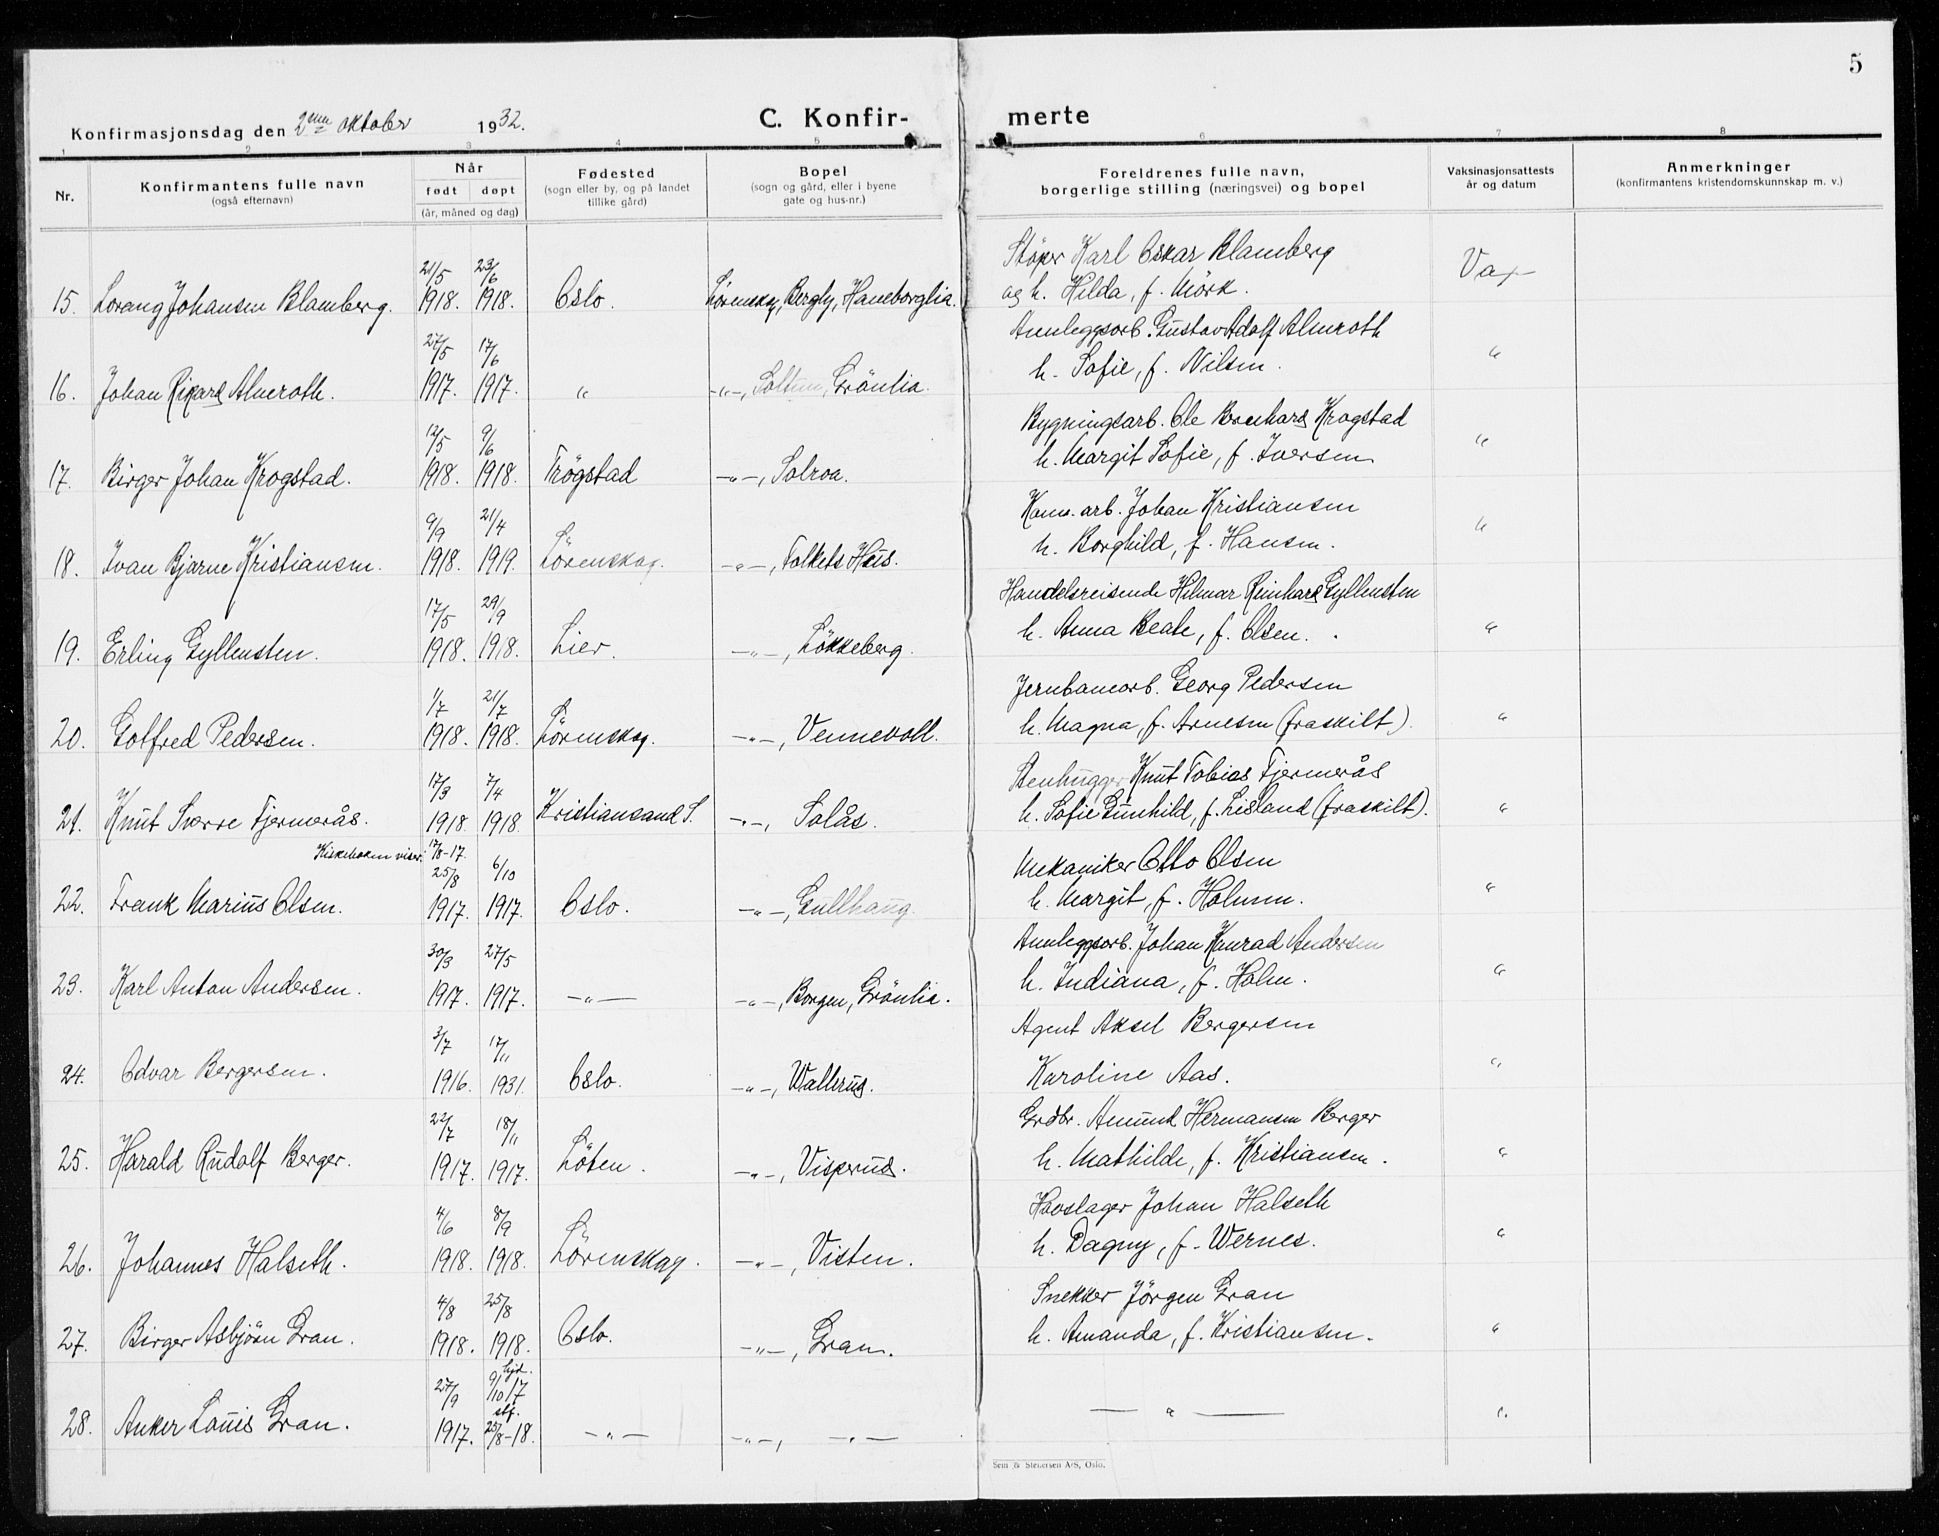 5
Konfirmasjonsdag den 2nen oktober 1932. C. Konfir- merte
1 2 3 4 5 6 7 8
Nr. Konfirmantens fulle navn (også efternavn) Når født døpt (år, måned og dag) Fødested (sogn eller by, og på landet tillike gård) Bopel (sogn og gård, eller i byene gate og hus-nr.) Foreldrenes fulle navn, borgerlige stilling (næringsvei) og bopel Vaksinasjonsattests år og datum Anmerkninger (konfirmantens kristendomskunnskap m. v.)
21/5 23/6 Støper Karl Oskar Blamberg
15. Lorang Johansen Blamberg. 1918. 1918. Oslo. Lørenskog, Bergly, Haneborglia. og h. Hilda, f. Mörk. Vax
27/5 17/6 Annleggsarb. Gustav Adolf Almroth
16. Johan Rikard Almroth. 1917. 1917. " -"-, Soltun, Grönlia. h. Sofie, f. Nilsen. "
12/5 9/6 Bygningsarb. Ole Bernhard Krogstad
17. Birger Johan Krogstad. 1918. 1918. Trögstad -"-, Solroa. h. Margit Sofie, f. Iversen "
9/9 21/4 Komm. arb. Johan Kristiansen
18. Ivan Bjarne Kristiansen. 1918. 1919. Lörenskog. -"-, Folkets Hus. h. Borghild, f. Hansen. "
17/5 29/9 Handelsreisende Hilmar Reinhard Gyllensten
19. Erling Gyllensten. 1918. 1918. Lier. -"-, Lökkeberg. h. Anna Beate, f. Olsen. "
1/7 21/7 Jernbanearb. Georg Pedersen
20. Gotfred Pedersen. 1918. 1918. Lörenskog. -"-, Vennevoll. h. Magna, f. Arnesen (fraskilt). "
17/3 7/4 Stenhugger Knut Tobias Fjermerås
21. Knut Sverre Fjermerås. 1918. 1918. Kristiansand S. -"-, Solås. h. Sofie Gunhild, f. Lisland (fraskilt). "
Kirkeboken viser: 17/8-17.
25/8 6/10 Mekaniker Otto Olsen
22. Frank Marius Olsen. 1917. 1917. Oslo. -"-, Gullhaug. h. Margit, f. Holmen. "
30/3 27/5 Annleggsarb. Johan Konrad Andersen
23. Karl Anton Andersen. 1917. 1917. -"- -"-, Borgen, Grönlia. h. Indiana, f. Holm. "
3/7 17/11 Agent Aksel Bergersen
24. Odvar Bergersen. 1916. 1931. Oslo. -"-, Wallrud. Karoline Aas. "
22/7 18/11 Grdbr. Amund Hermansen Berger
25. Harald Rudolf Berger. 1917. 1917. Löten. -"-, Visperud. h. Mathilde, f. Kristiansen. "
4/6 8/9 Hovslager Johan Halseth
26. Johannes Halseth. 1918. 1918. Lörenskog. -"-, Visten. h. Dagny, f. Wernes. "
4/8 25/8 Snekker Jörgen Gran
27. Birger Asbjörn Gran. 1918. 1918. Oslo. -"-, Gran. h. Amanda, f. Kristiansen. "
27/9 hjd. 9/10 17 stf.
28. Anker Louis Gran. 1917. 25/8-18. -"- -"-, -"- -"- "
Sem & Stenersen A/S, Oslo.